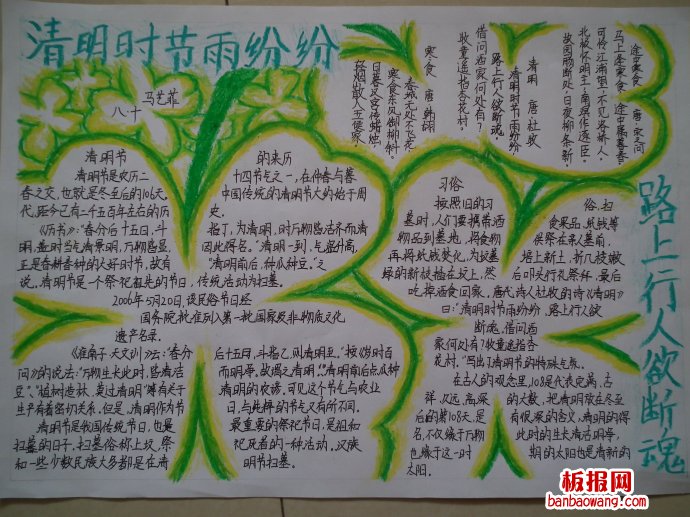 清明时节雨纷纷
八.十 马艺菲
寒食 唐 韩翃
春城无处不飞花
寒食东风御柳斜
日暮汉宫传蜡烛
轻烟散入五侯家
清明 唐 杜牧
清明时节雨纷纷
路上行人欲断魂
借问酒家何处有?
牧童遥指杏花村
途中寒食 唐 宋之问
马上逢寒食,途中属暮春
可怜江浦望,不见洛桥人
北极怀明主,南溟作逐臣
故园肠断处,日夜柳条新
路上行人欲断魂
清明节
清明节是农历二
春之交,也就是冬至后的106天
代,距今已有二千五百年左右的历
《历书》:"春分后十五日,斗
明,盖时当气清景明,万物皆显,
正是春耕春种的大好时节,故有
说。清明节是一个祭祀祖先的节日,
的来历
十四节气之一,在仲春与暮
中国传统的清明节大约始于周
史。
指丁,为清明,时万物皆洁齐而清
因此得名。"清明一到,气温升高,
"清明前后,种瓜种豆。"之
传统活动为扫墓。
2006年5月20日,该民俗节日经
国务院批准列入第一批国家级非物质文化
遗产名录。
习俗
按照旧的习
墓时,人们要携带酒
物品到墓地,将食物
再将纸钱焚化,为坟墓
绿的新枝插在坟上,然
吃掉酒食回家。唐代诗人杜牧的诗《清明》
俗,扫
食果品,纸钱等
供祭在亲人墓前,
培上新土,折几枝嫩
后叩头行礼祭拜,最后
曰:"清明时节雨纷纷 路上行人欲
断魂。借问酒
家何处有?牧童遥指杏
花村。"写出了清明节的特殊气氛。
《淮南子 天文训》云:"春分
问》的说法:"万物生长此时,皆清洁
豆"、"植树造林,莫过清明"
生产有着密切关系。但是,清明作为节
清明节是我国传统节日,也是
扫墓的日子,扫墓俗称上坟,祭
和一些少数民族大多都是在清
后十五日,斗指乙,则清明至。"按《岁时百
而明净。故谓之清明。"清明前后点瓜种
清明的农谚,可见这个节气与农业
日,与纯粹的节气又有所不同。
最重要的祭祀节日,是祖和
祀死者的一种活动。汉族
明节扫墓。
在古人的观念里,108是代表完满、吉
祥、久远、高深
后的第108天,是
名,不仅缘于万物
也缘于这一时
太阳。
的大数,把清明放在冬至
有很深的含义,清明的得
此时的生长清洁明净,
期的太阳也是清新的
板报网
banbaowang.com